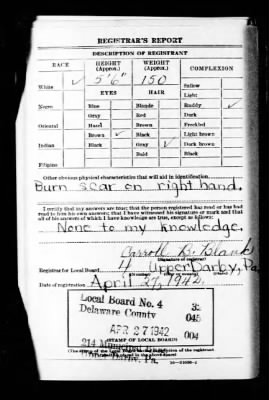 REGISTRAR'S REPORT
DESCRIPTION OF REGISTRANT
RACE HEIGHT (Approx.) WEIGHT (Approx.) COMPLEXION
5'6" 150
White ✓ Sallow
EYES HAIR Light
Negro Blue Blonde Ruddy ✓
Gray Red Dark
Oriental Hazel Brown Freckled
Brown ✓ Black Light brown
Indian Black Gray ✓ Dark brown
Bald Black
Filipino
Other obvious physical characteristics that will aid in identification
Burn scar on right hand.
I certify that my answers are true; that the person registered has read or has had
read to him his own answers; that I have witnessed his signature or mark and that
all of his answers of which I have knowledge are true, except as follows:
None to my knowledge.
Carroll B. Blank
(Signature of registrar)
Registrar for Local Board 4 Upper Darby, Pa.
Date of registration April 27, 1942
Local Board No. 4 
Delaware County 045
APR 27 1942 004
214 Municipal
(STAMP OF LOCAL BOARD)
Pa.